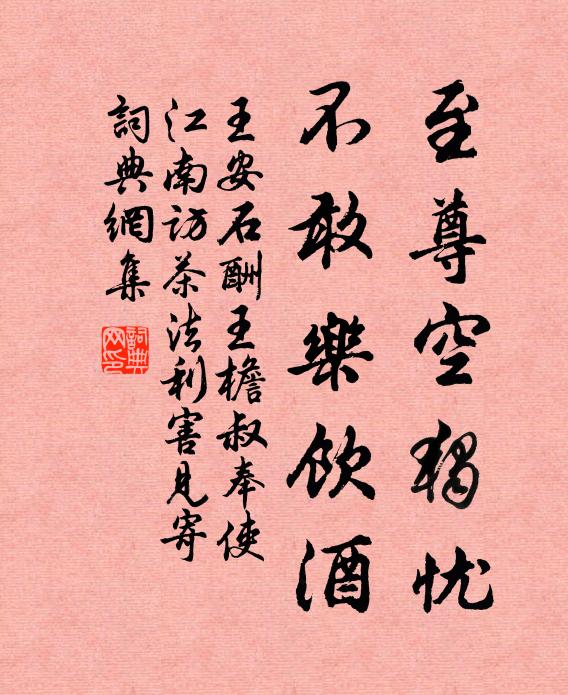 至尊空獨忧
不敢樂饮酒
王安石酬王檐叔奉使
江南访茶法利害見寄
詞典網集
詞典
网印